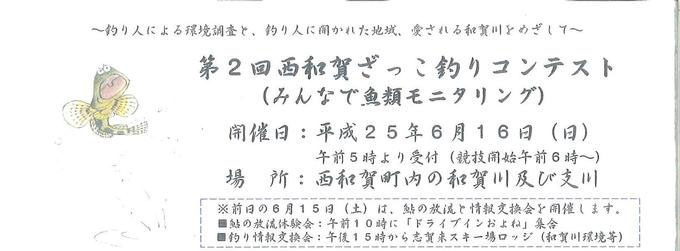 ～釣り人による環境調査と、釣り人に開かれた地域、愛される和賀川をめざして～
第２回西和賀ざっこ釣りコンテスト
（みんなで魚類モニタリング）
開催日：平成２５年６月１６日（日）
午前５時より受付（競技開始午前６時～）
場　所：西和賀町内の和賀川及び支川
※前日の６月１５日（土）は、鮎の放流と情報交換会を開催します。
■鮎の放流体験会：午前１０時に「ドライブインおよね」集合
■釣り情報交換会：午後１５時から志賀来スキー場ロッジ（和賀川環境等）